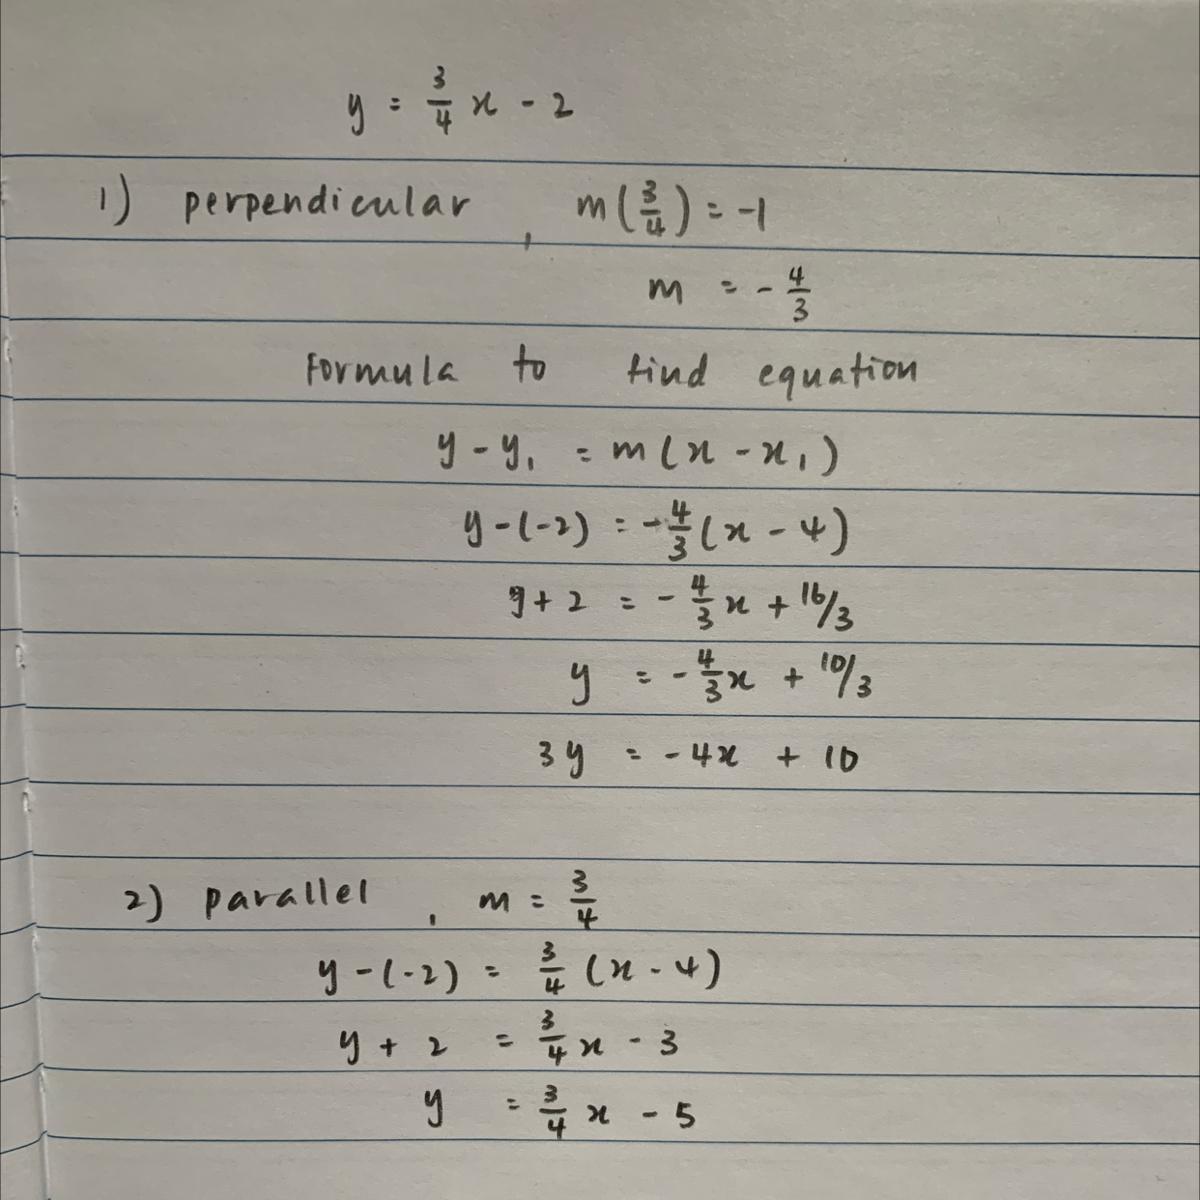 y = 3/4 x - 2
1) perpendicular, m(3/4) = -1
m = - 4/3
Formula to find equation
y - y₁ = m(x - x₁)
y - (-2) = - 4/3 (x - 4)
y + 2 = - 4/3 x + 16/3
y = - 4/3 x + 10/3
3y = -4x + 10
2) parallel, m = 3/4
y - (-2) = 3/4 (x - 4)
y + 2 = 3/4 x - 3
y = 3/4 x - 5